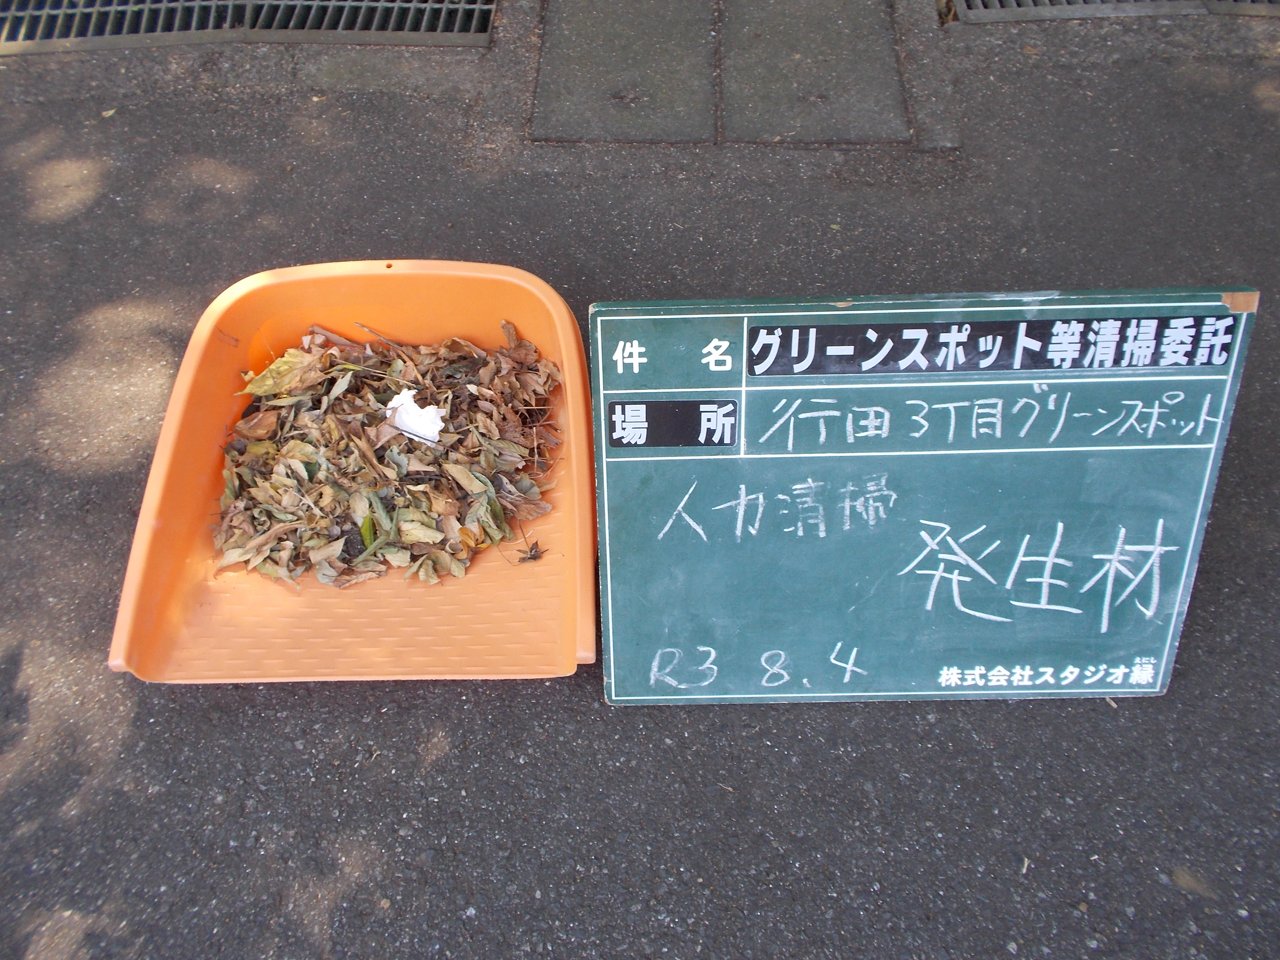 件名 グリーンスポット等清掃委託
場所 行田3丁目グリーンスポット
人力清掃
発生材
R3 8.4
えにし
株式会社スタジオ縁